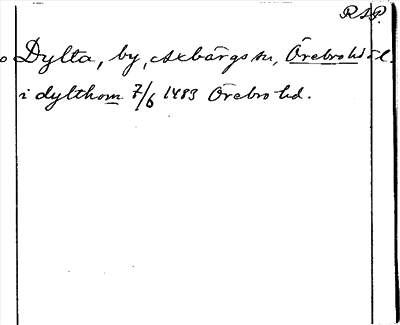 RAP.
Dylta, by, Axbärgs sn, Örebro hd öl.
i dylthom 7/6 1483 Örebro hd.